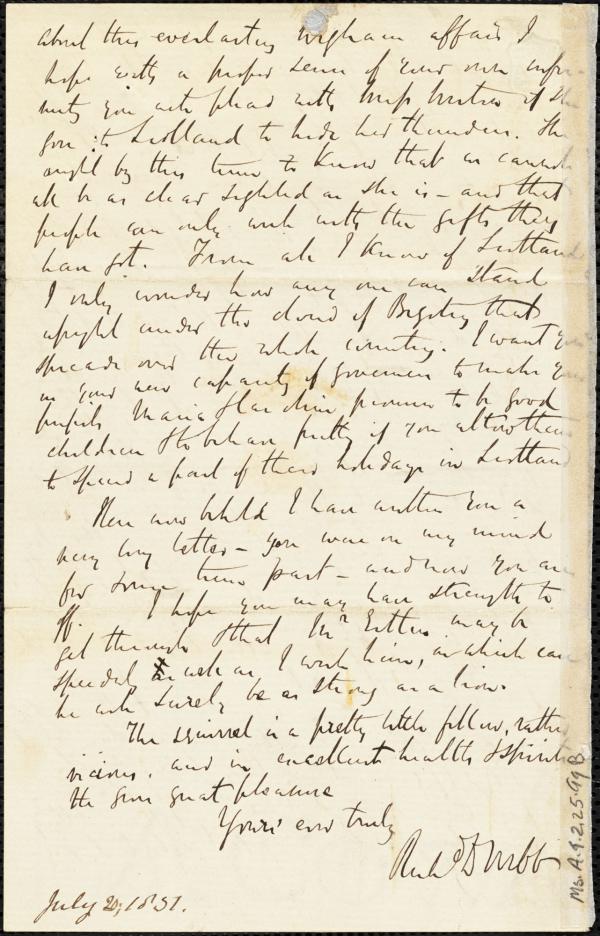 about this everlasting Wigham affair I
hope with a proper sense of your own infir-
mity you will plead with Miss Weston if she
goes to Scotland to hide her thunders. She
ought by this time to know that we cannot
all be as clear sighted as she is - and that
people can only work with the gifts they
have got. From all I know of Scotland
I only wonder how any one can stand
upright under the cloud of Bigotry that
spreads over the whole country. I want you
in your new capacity of governess to make your
pupils Maria & Caroline promise to be good
children & to behave prettily if you allow them
to spend a part of their holidays in Scotland
Here now behold I have written you a
very long letter - you were on my mind
for some time past - and now you are
off. I hope you may have strength to
get through & that Mr Estlin may be
speedily as well as I wish him, in which case
he will surely be as strong as a lion.
The squirrel is a pretty little fellow, rather
vicious, and in excellent health & spirits
He gives great pleasure
Yours ever truly
Richd D Webb
July 20, 1851.
Ms. A.9.2.25.99B